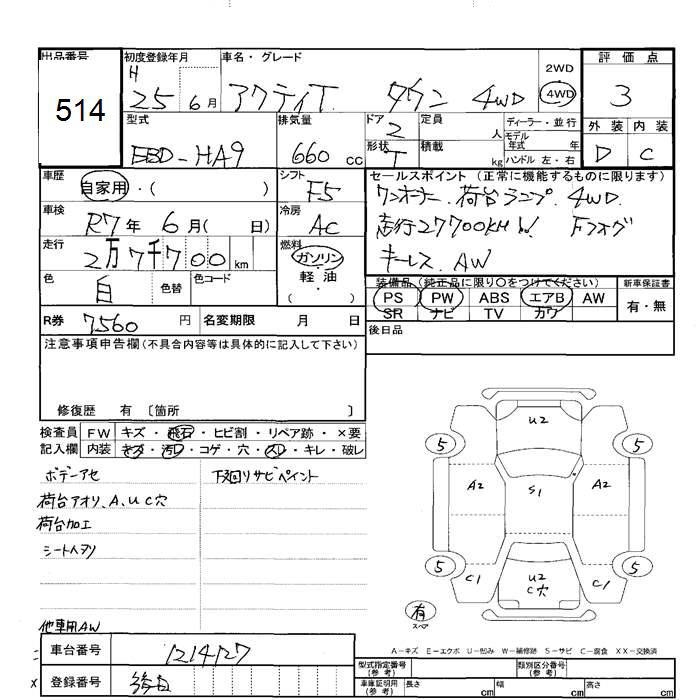 出品番号 514
初度登録年月 H 25 6月
車名・グレード アクティT タウン 4WD
2WD
4WD
評価点 3
型式 EBD-HA9
排気量 660 cc
ドア 2
形状 T
定員 人
積載 kg
ディーラー・並行
モデル年式 年式
ハンドル 左・右
外装 内装
D C
車歴 自家用・( )
シフト F5
セールスポイント(正常に機能するものに限ります)
ワンオーナー 荷台ランプ 4WD
走行27700KM!! Fフォグ
キーレス AW
車検 R7年 6月( 日)
冷房 AC
走行 2万7千700 km
燃料 ガソリン・軽・油 ( )
色 白 色替
色コード
装備品(純正品に限り○をつけてください)
PS PW ABS エアB AW
SR ナビ TV カワ
新車保証書
有・無
R券 7560 円
名変期限 月 日
後日品
注意事項申告欄(不具合内容等は具体的に記入して下さい)
修復歴 有 〔箇所 〕
検査員記入欄
FW キズ・飛石・ヒビ割・リペア跡・×要
内装 キズ・汚レ・コゲ・穴・スレ・キレ・破レ
ボデーアセ
下回りサビペイント
荷台アオリ、A、U、C穴
荷台加工
シートヘタリ
他車用AW
U2
5 5
A2 S1 A2
5 5
C1 U2 C穴 C1
有 スペア
A-キズ E-エクボ U-凹み W-補修跡 S-サビ C-腐食 XX-交換済
車台番号 1214127
登録番号 後日
型式指定番号(参考)
類別区分番号(参考)
車庫証明用(参考) 長さ cm 幅 cm 高さ cm